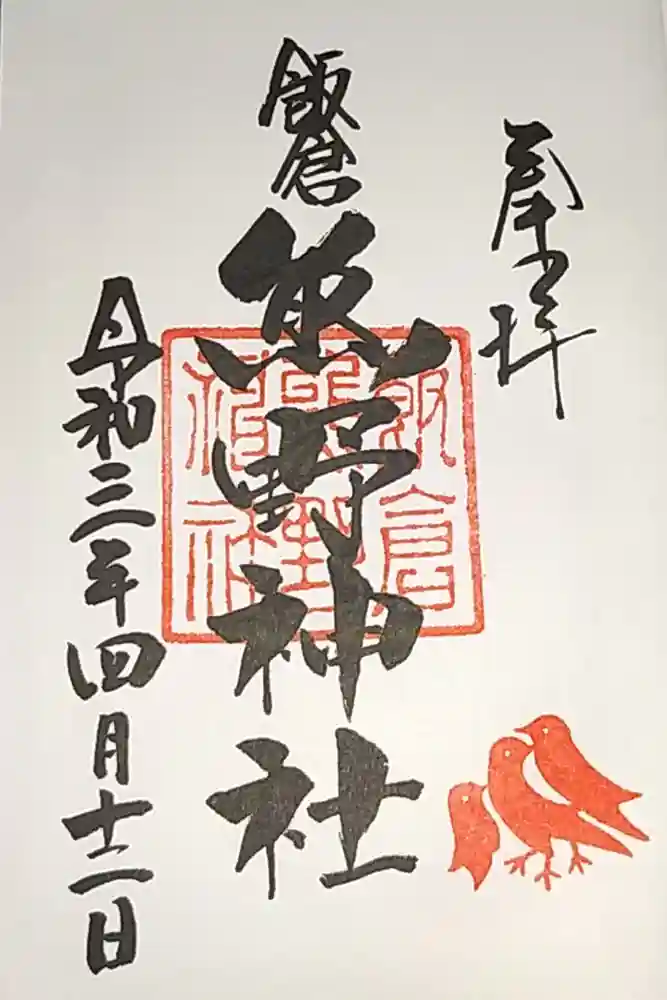 奉拝
飯倉
熊野神社
飯倉
熊野
神社
令和三年四月十二日